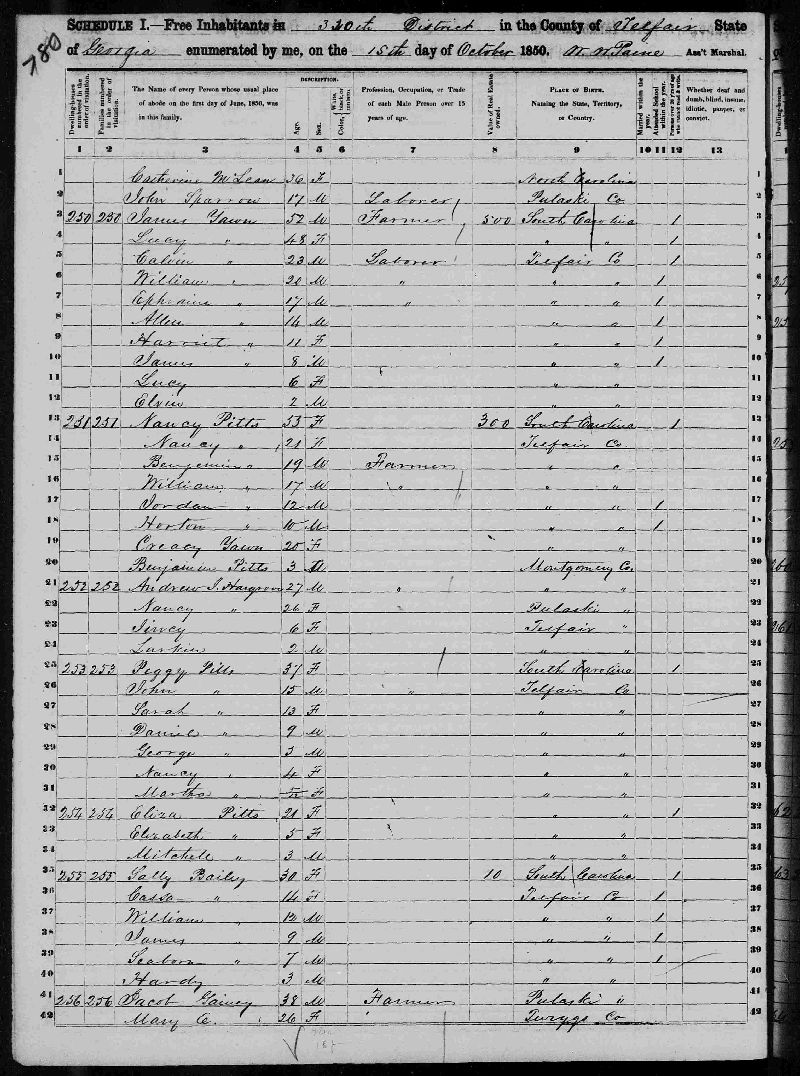 780
SCHEDULE I.—Free Inhabitants in 330th District in the County of Telfair State
of Georgia enumerated by me, on the 15th day of October 1850. Ass't Marshal.
Dwelling-houses numbered in the order of visitation. Families numbered in the order of visitation. The Name of every Person whose usual place of abode on the first day of June, 1850, was in this family. DESCRIPTION. Age. Sex. Color, White, black, or mulatto. Profession, Occupation, or Trade of each Male Person over 15 years of age. Value of Real Estate owned. PLACE OF BIRTH. Naming the State, Territory, or Country. Married within the year. Attended School within the year. Persons over 20 y'rs of age who cannot read & write. Whether deaf and dumb, blind, insane, idiotic, pauper, or convict.
1 2 3 4 5 6 7 8 9 10 11 12 13
1 Catherine McLean 36 F North Carolina 1
2 John Sparrow 17 M Laborer Pulaski Co 2
3 250 250 James Yawn 52 M Farmer 500 South Carolina 1 3
4 Lucy " 48 F " " 1 4
5 Calvin " 23 M Laborer Telfair Co 1 5
6 William " 20 M " " " 1 6
7 Ephraim " 17 M " " " 1 7
8 Allen " 14 M " " 1 8
9 Harriet " 11 F " " 1 9
10 James " 8 M " " 1 10
11 Lucy 6 F " " 11
12 Elvin 2 M " " 12
13 251 251 Nancy Pitts 53 F 300 South Carolina 1 13
14 Nancy " 21 F Telfair Co 14
15 Benjamin " 19 M Farmer " " 15
16 William " 17 M " " " 16
17 Jordan " 12 M " " 1 17
18 Horton " 10 M " " 1 18
19 Creacy Yawn 20 F " " 19
20 Benjamin Pitts 3 M Montgomery Co 20
21 252 252 Andrew J. Hargrove 27 M " " " 21
22 Nancy " 26 F Pulaski " 22
23 6 F Telfair " 23
24 2 M " " 24
25 253 253 Peggy Pitts 37 F South Carolina 1 25
26 John " 15 M " Telfair Co 26
27 Sarah " 13 F " " 27
28 Daniel " 9 M " " 28
29 George " M " " 29
30 Nancy " 4 F " " 30
31 Martha " F " " 31
32 254 254 Eliza Pitts 21 F " " 1 32
33 Elizabeth " 5 F " " 33
34 Mitchell " 3 M " " 34
35 255 255 Sally Bailey 30 F 10 South Carolina 1 35
36 Cassa " 14 F Telfair Co 1 36
37 William " 12 M " " 1 37
38 James " 9 M " " 1 38
39 Seaborn " 7 M " " 1 39
40 Hardy 3 M " " 40
41 256 256 Jacob Gainey 38 M Farmer Pulaski " 41
42 Mary C. " 26 F Twiggs Co 42